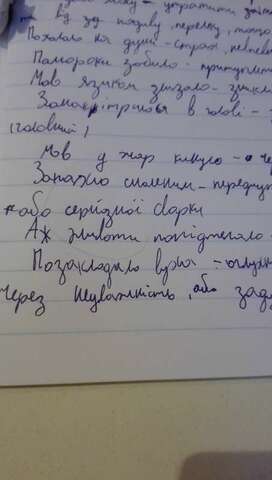 від зд подиву, переляку, тощо
Похололо на душі - страх, непевн
Памороки забило - притупити
Мов язиком злизало - зникл
Замакітрилось в голові -
(головний)
Мов у жар кинуло - а че
Запахло смаленим - передчут
або серйозної сварки
Аж животи попідтягало
Позакладало вуха - оглухн
через неуважність, або заду